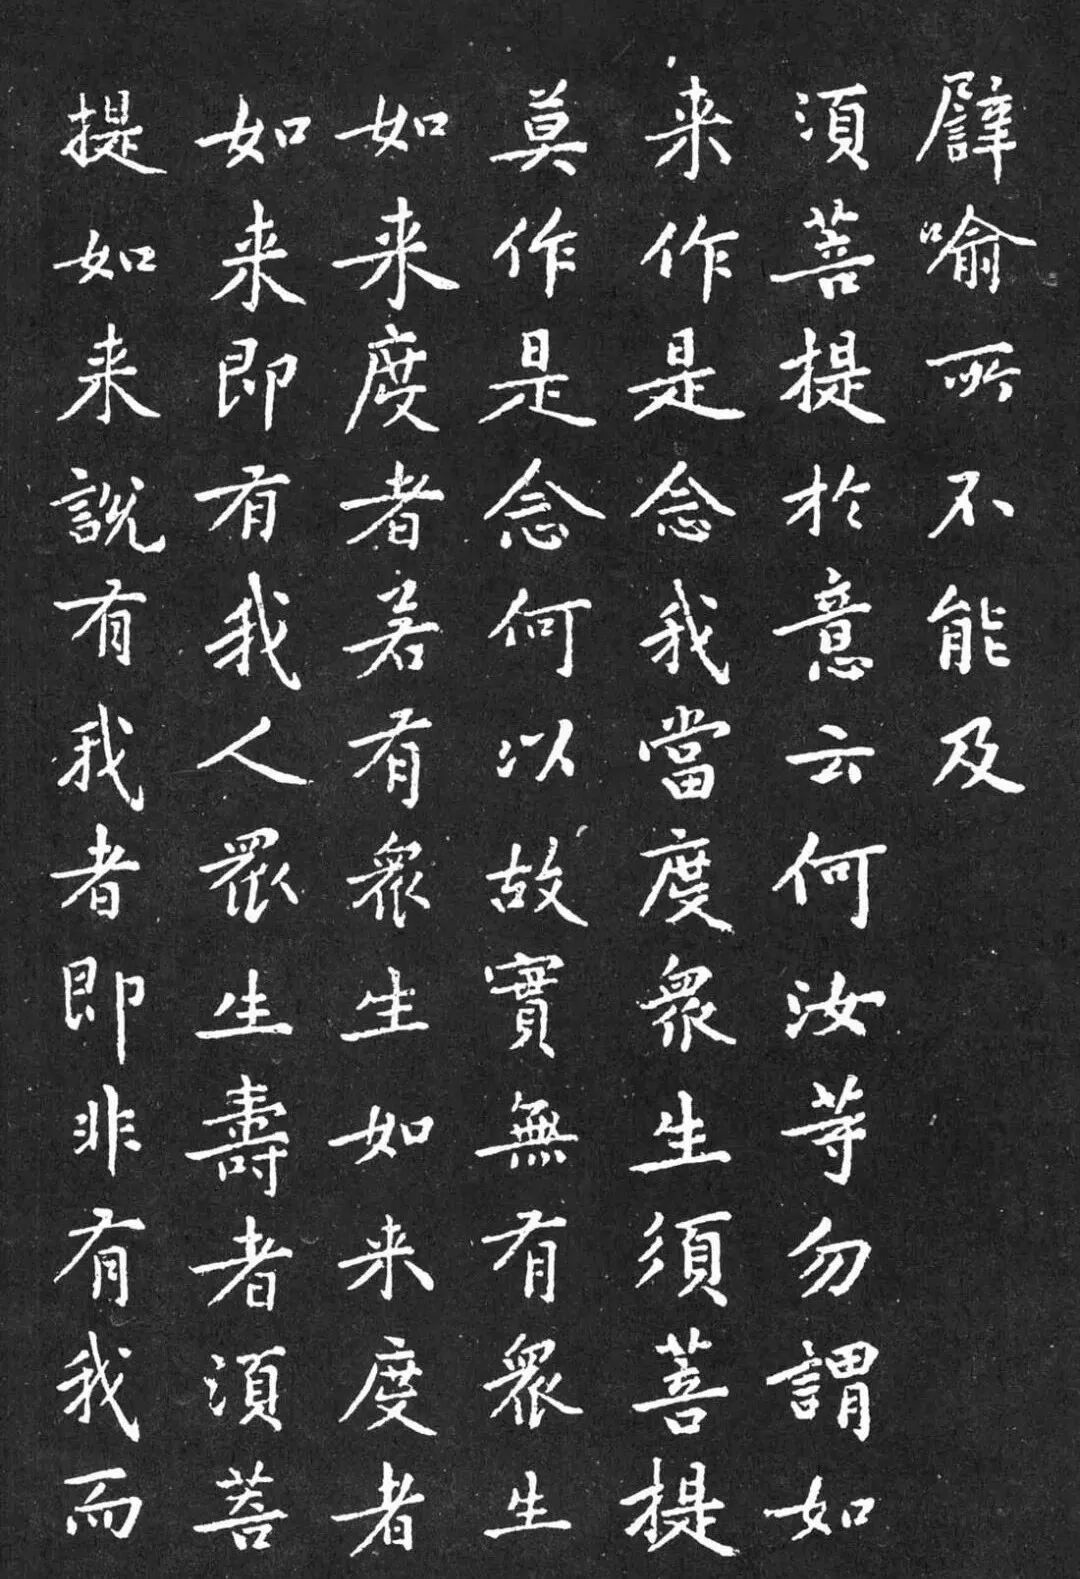 譬喻所不能及
須菩提於意云何汝等勿謂如
来作是念我當度眾生須菩提
莫作是念何以故實無有眾生
如来度者若有眾生如来度者
如来即有我人眾生壽者須菩
提如来說有我者即非有我而